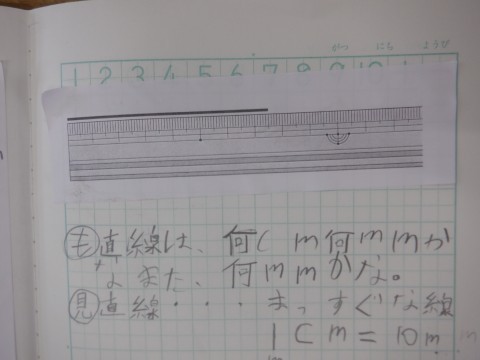 1 2 3 4 5 6 7 8 9 10
も 直線は、何cm何mmか
なまた、何mmかな。
見 直線・・・まっすぐな線
1cm=10m